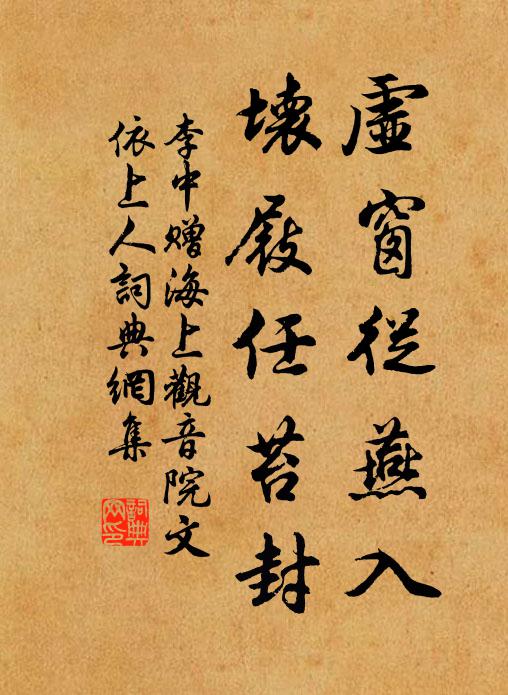 虛窗從燕入
壞屐任苔封
李中贈海上觀音院文
依上人詞典網集
詞典
网印